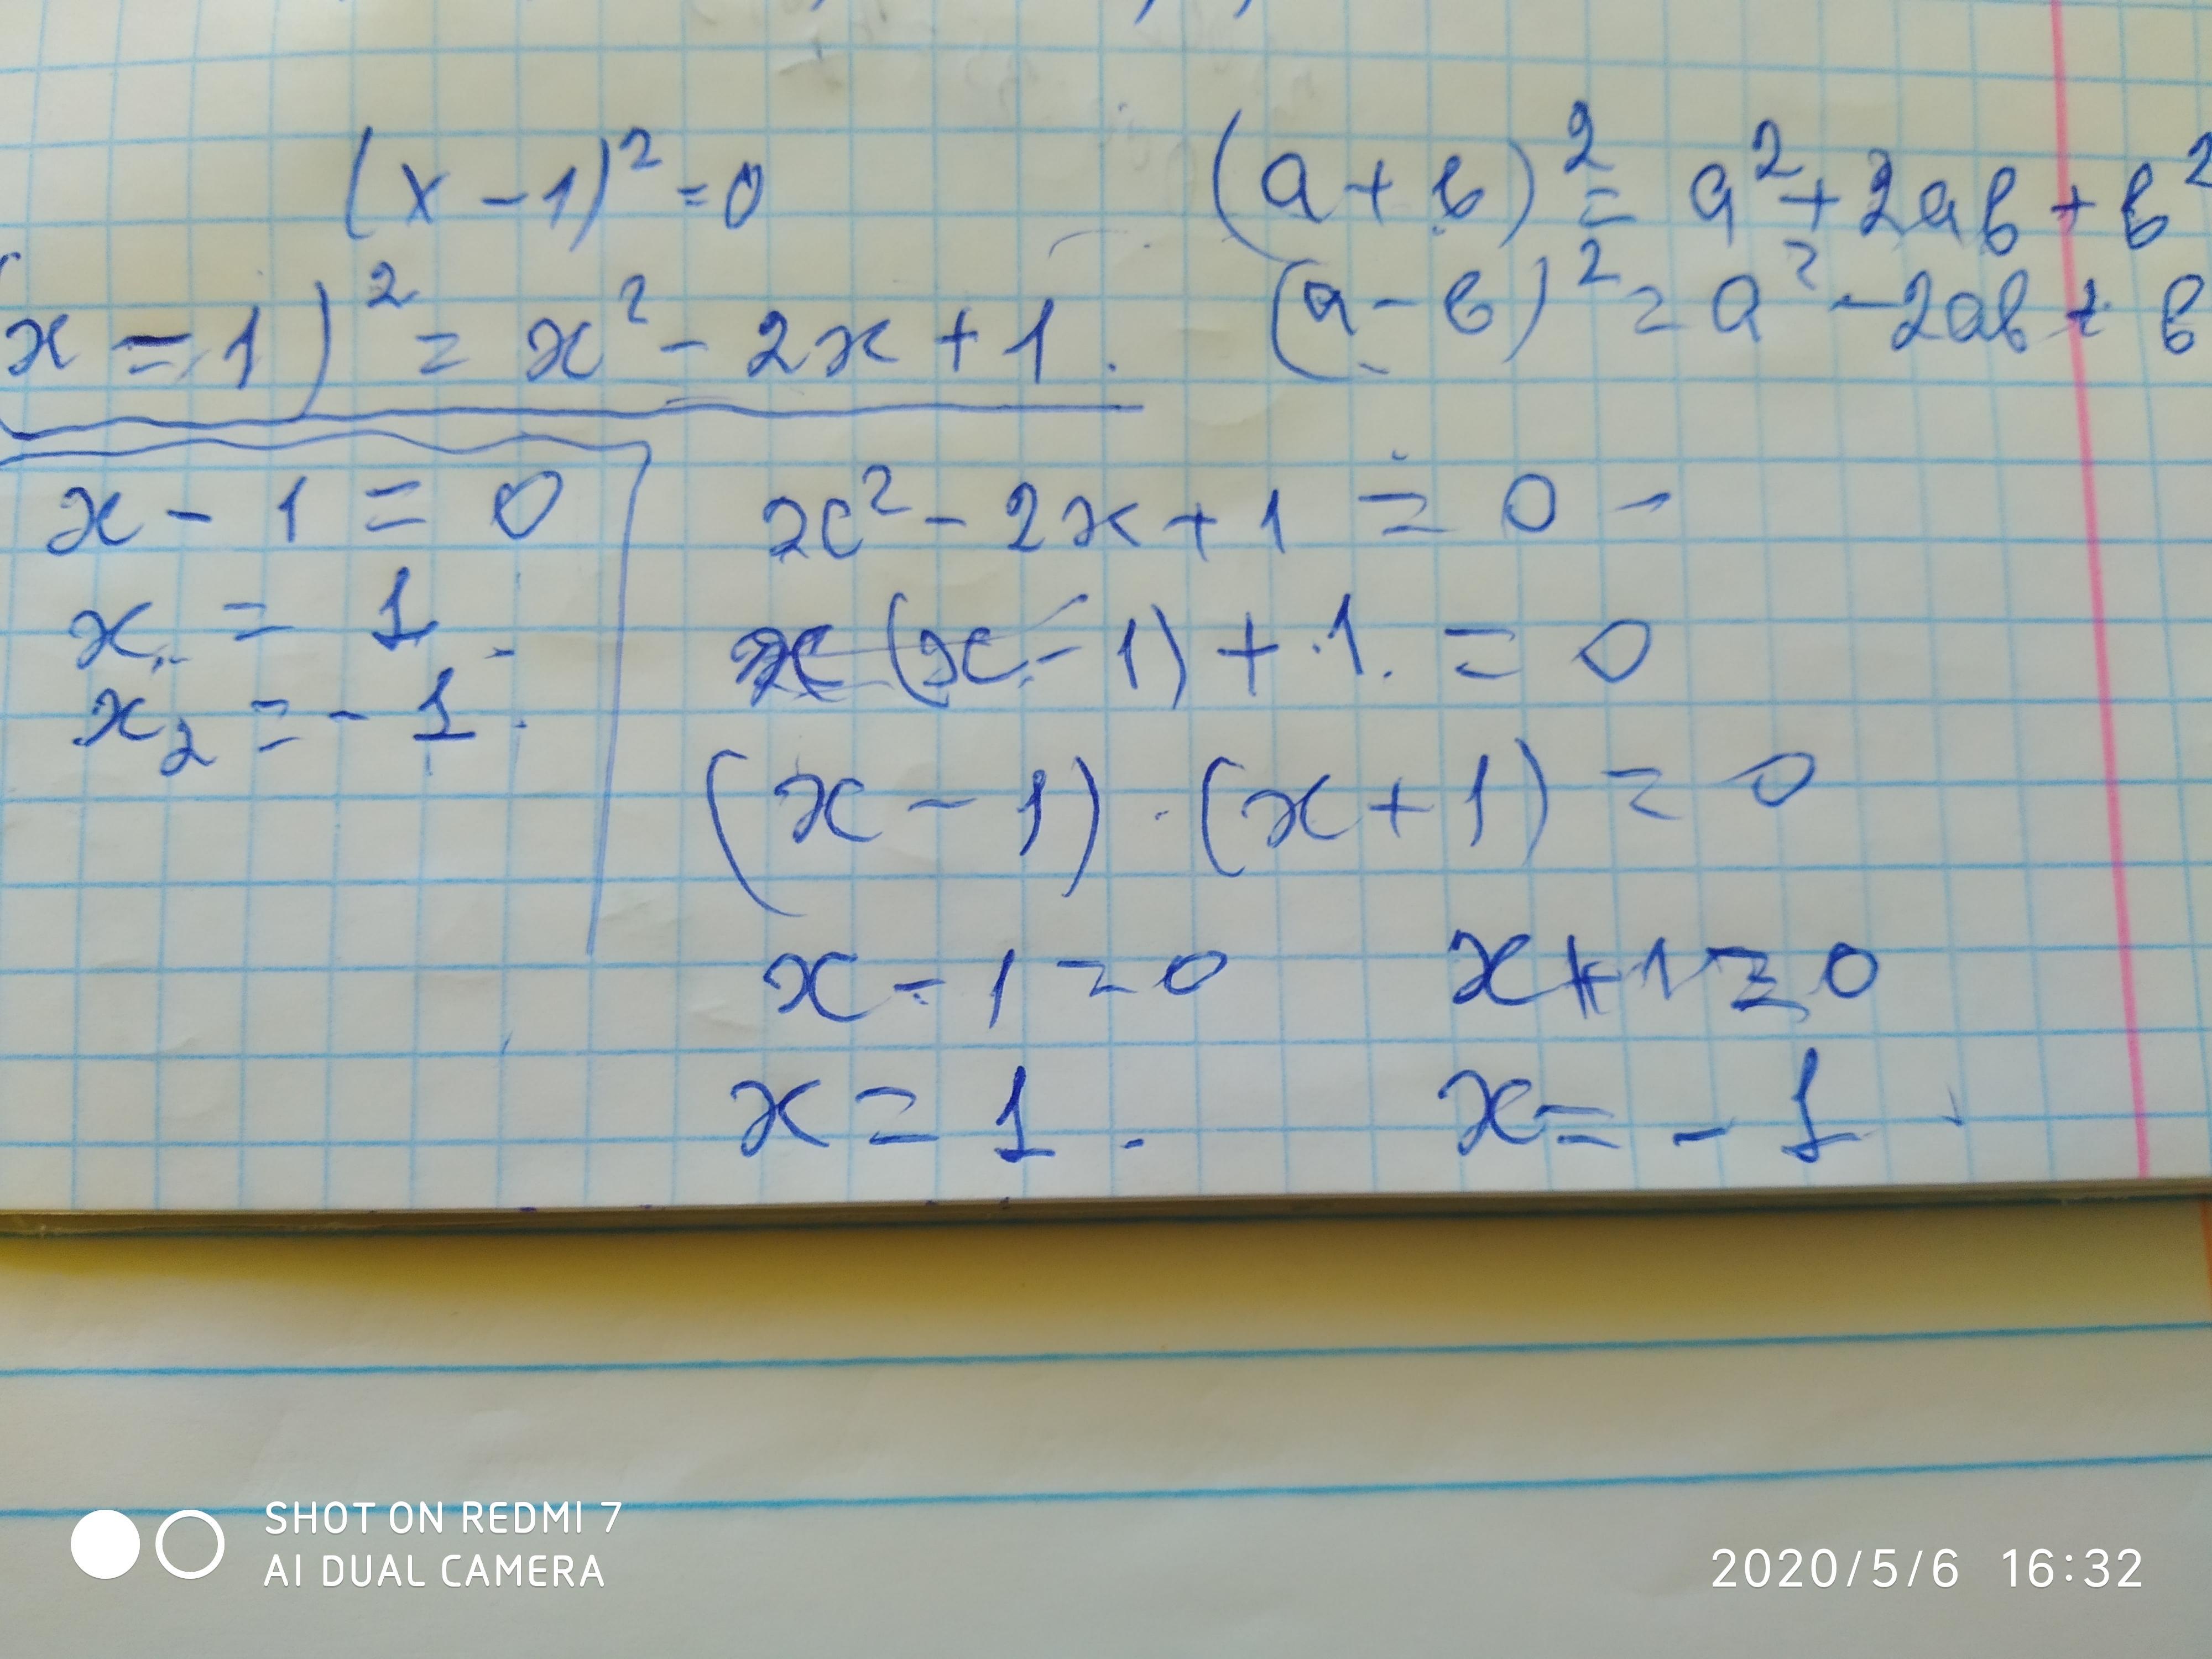 (x - 1)² = 0
(a + в)² = a² + 2aв + в²
(x - 1)² = x² - 2x + 1.
(a - в)² = a² - 2aв + в
x - 1 = 0
x = 1
x₂ = - 1.
x² - 2x + 1 = 0
x (x - 1) + 1. = 0
(x - 1) · (x + 1) = 0
x - 1 = 0 x + 1 = 0
x = 1. x = - 1
SHOT ON REDMI 7
AI DUAL CAMERA
2020/5/6 16:32